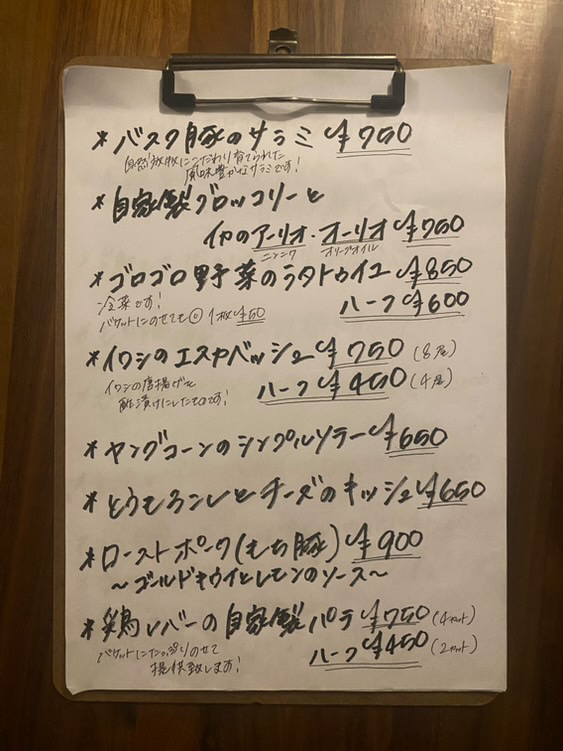 * バスク豚のサラミ ¥750
自然放牧にこだわり育てられた
風味豊かなサラミです!
* 自家製ブロッコリーと
イカのアーリオ・オーリオ ¥750
ニンニク オリーブオイル
* ゴロゴロ野菜のラタトゥイユ ¥850
冷菜です! ハーフ ¥600
バケットにのせても◎ 1枚¥50
* イワシのエスカベッシュ ¥750 (8尾)
イワシの唐揚げを ハーフ ¥450 (4尾)
酢漬けにしたものです!
* ヤングコーンのシンプルソテー ¥650
* とうもろこしとチーズのキッシュ ¥650
* ローストポーク(もち豚) ¥900
~ゴールドキウイとレモンのソース~
* 鶏レバーの自家製パテ ¥750 (4カット)
バケットにたっぷりのせて ハーフ ¥450 (2カット)
提供致します!